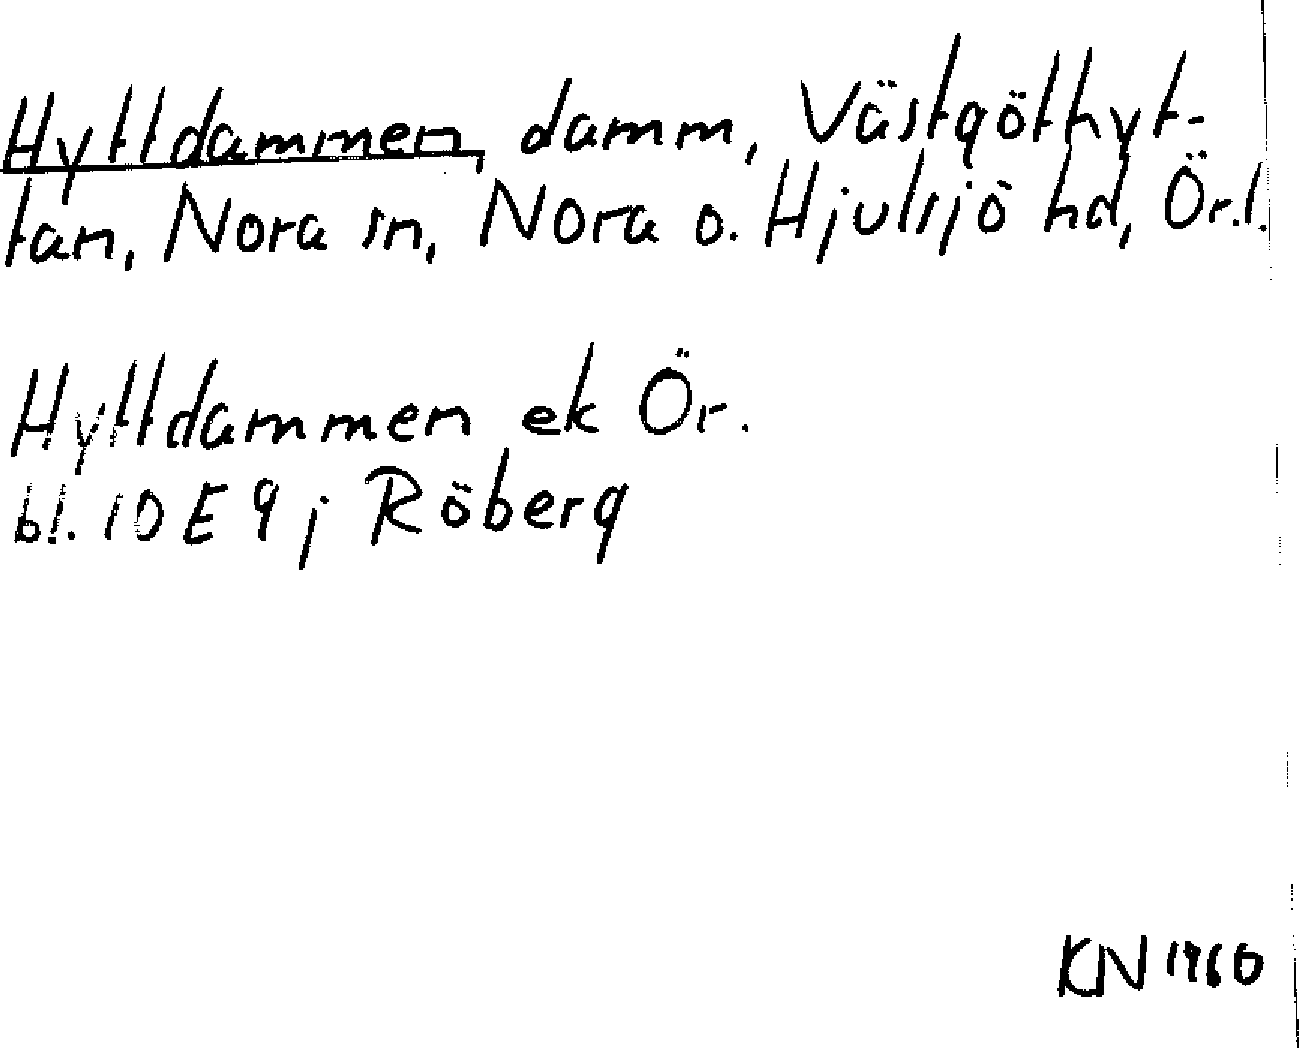 Hyttdammen, damm, Västgöthyt-
tan, Nora sn, Nora o. Hjulsjö hd, Ör.l.
Hyttdammen ek Ör.
bl. 10 E 9 j Röberg
KN 1960